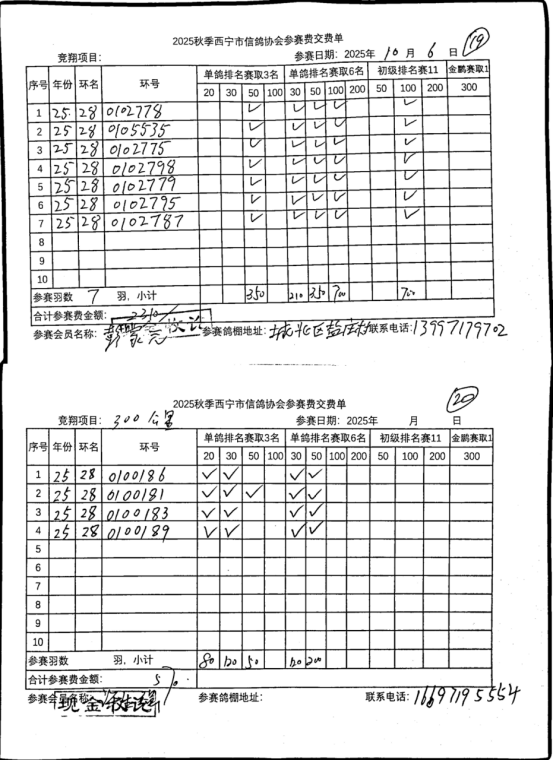 2025秋季西宁市信鸽协会参赛费交费单 19
竞翔项目： 参赛日期：2025年 10 月 6 日
序号 年份 环名 环号 单鸽排名赛取3名 单鸽排名赛取6名 初级排名赛11 金鹏赛取1
20 30 50 100 30 50 100 200 50 100 200 300
1 25 28 0102778 ✓ ✓ ✓ ✓ ✓
2 25 28 0105535 ✓ ✓ ✓ ✓ ✓
3 25 28 0102775 ✓ ✓ ✓ ✓ ✓
4 25 28 0102798 ✓ ✓ ✓ ✓ ✓
5 25 28 0102779 ✓ ✓ ✓ ✓ ✓
6 25 28 0102795 ✓ ✓ ✓ ✓ ✓
7 25 28 0102787 ✓ ✓ ✓ ✓ ✓
8
9
10
参赛羽数 7 羽，小计 350 210 350 700 700
合计参赛费金额： 2310/
参赛会员名称： 参赛鸽棚地址：城北区盐庄村 联系电话：13997179702
2025秋季西宁市信鸽协会参赛费交费单 20
竞翔项目： 300公里 参赛日期：2025年 月 日
序号 年份 环名 环号 单鸽排名赛取3名 单鸽排名赛取6名 初级排名赛11 金鹏赛取1
20 30 50 100 30 50 100 200 50 100 200 300
1 25 28 0100186 ✓ ✓ ✓ ✓
2 25 28 0100181 ✓ ✓ ✓ ✓ ✓
3 25 28 0100183 ✓ ✓ ✓ ✓
4 25 28 0100189 ✓ ✓ ✓ ✓
5
6
7
8
9
10
参赛羽数 羽，小计 80 120 50 120 200
合计参赛费金额：
参赛会员名称： 现金 参赛鸽棚地址： 联系电话：16697195554